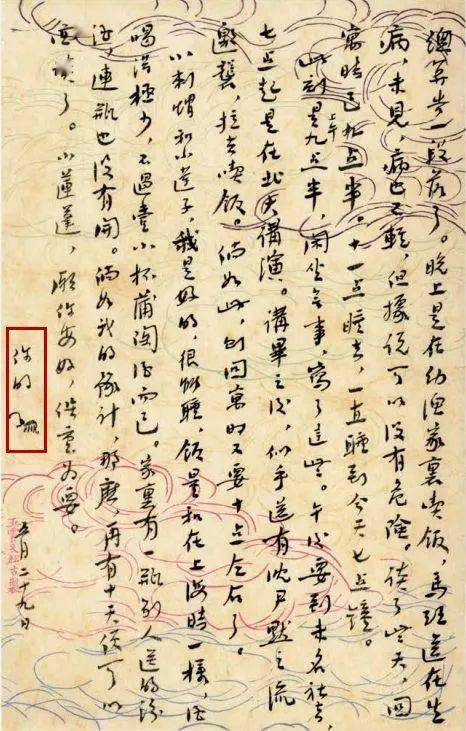 總算告一段落了。晚上是在幼漁家裏喫飯,馬珏還在生
病,未見,病也不輕,但據說可以沒有危險。談了些天,回
寓時已九点半。十一点睡去,一直睡到今天七点鐘。
此刻是上午九点半,閑坐無事,寫了這些。午後要到未名社去,
七点起是在北大講演。講畢之後,似乎還有沈尹默之流
邀襲,拉去喫飯。倘如此,則回寓時又要十点左右了。
小刺蝟和小蓮子,我是好的,很能睡,飯量和在上海時一樣,酒
喝得極少,不過壹小杯蒲陶酒而已。家裏有一瓶別人送的汾
酒,連瓶也沒有開。倘如我的豫計,那麼,再有十天便可以
面談了。小蓮蓬,願你安好,保重为要。
你的
五月二十九日